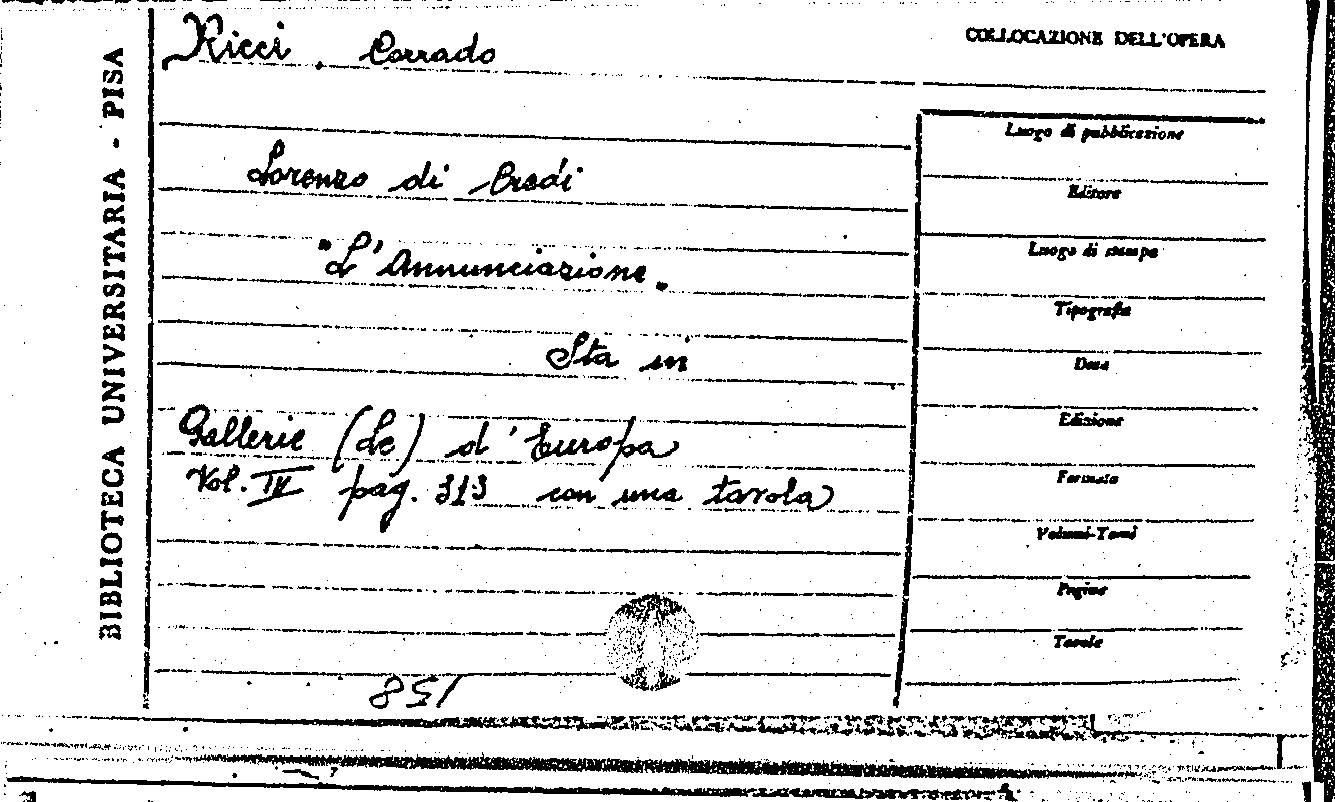 BIBLIOTECA UNIVERSITARIA - PISA
Ricci. Corrado
COLLOCAZIONE DELL'OPERA
Lorenzo di Credi
"L'Annunciazione"
Sta in
Gallerie (Le) d'Europa
Vol. IV pag. 313 con una tavola
Luogo di pubblicazione
Editore
Luogo di stampa
Tipografia
Data
Edizione
Formato
Volumi-Tomi
Pagine
Tavole